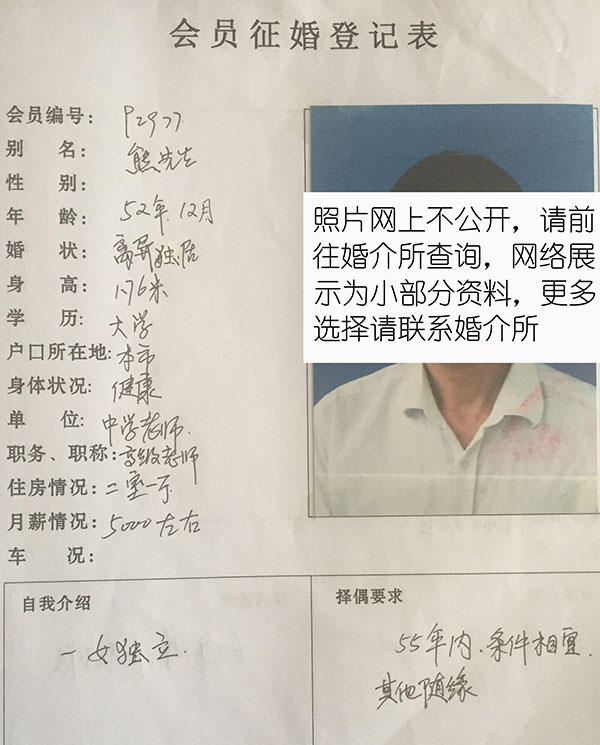 会员征婚登记表
会员编号: P2977
别 名: 熊先生
性 别:
年 龄: 52年.12月
婚 状: 离异独居
身 高: 1.76米
学 历: 大学
户口所在地: 本市
身体状况: 健康
单 位: 中学老师.
职务、职称: 高级老师
住房情况: 二室一厅
月薪情况: 5000左右
车 况:
照片网上不公开，请前
往婚介所查询，网络展
示为小部分资料，更多
选择请联系婚介所
自我介绍
一女独立.
择偶要求
55年内、条件相宜.
其他随缘